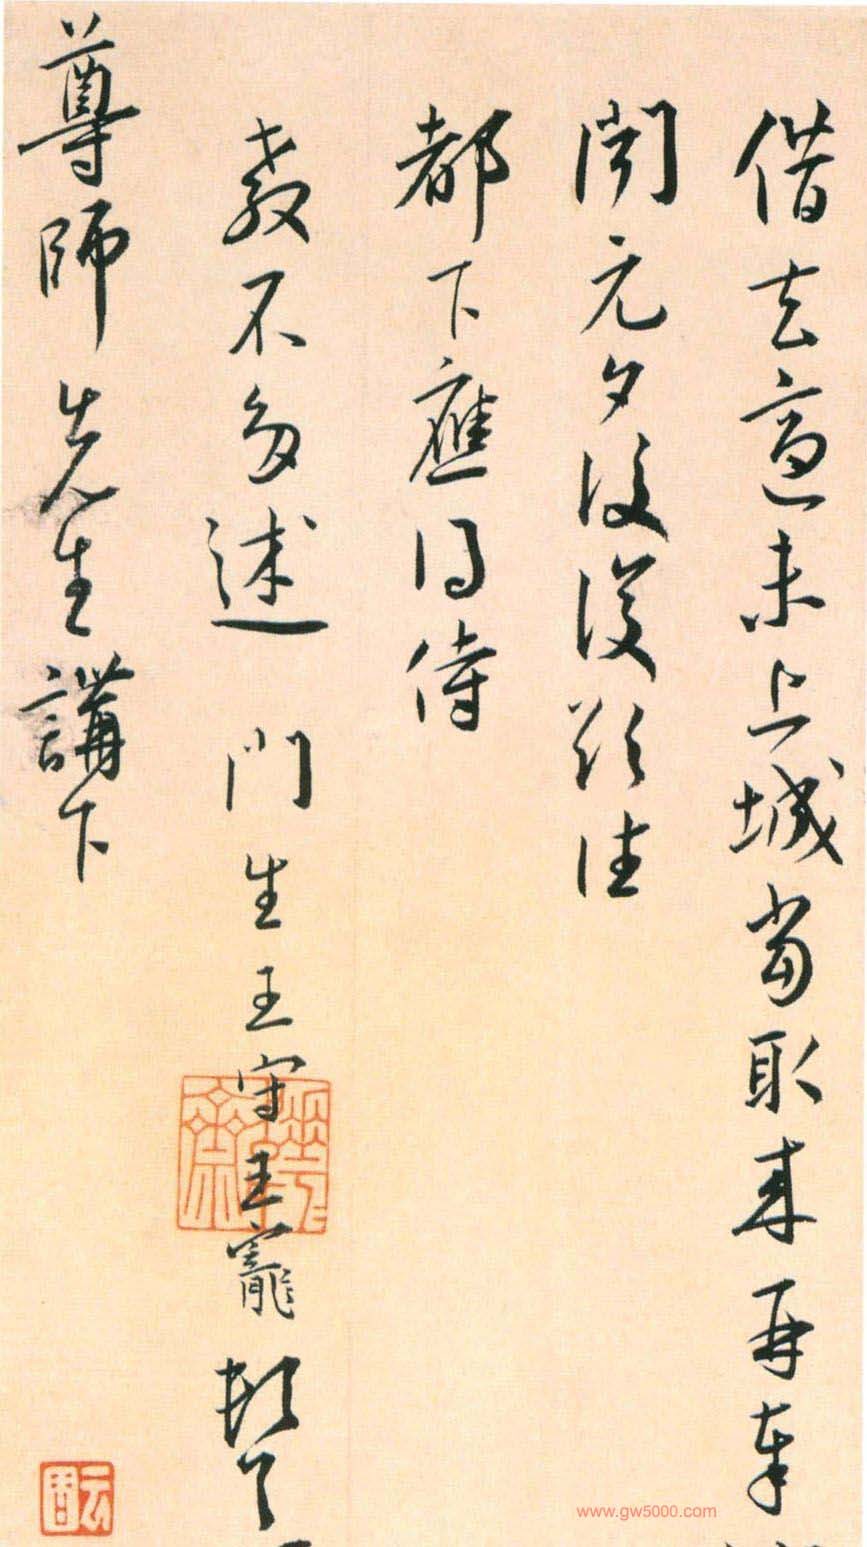 借去適未上城當取來再奉
聞元夕後復欲往
都下應得侍
教不多述 門生王守王寵頓首
尊師先生講下
www.gw5000.com